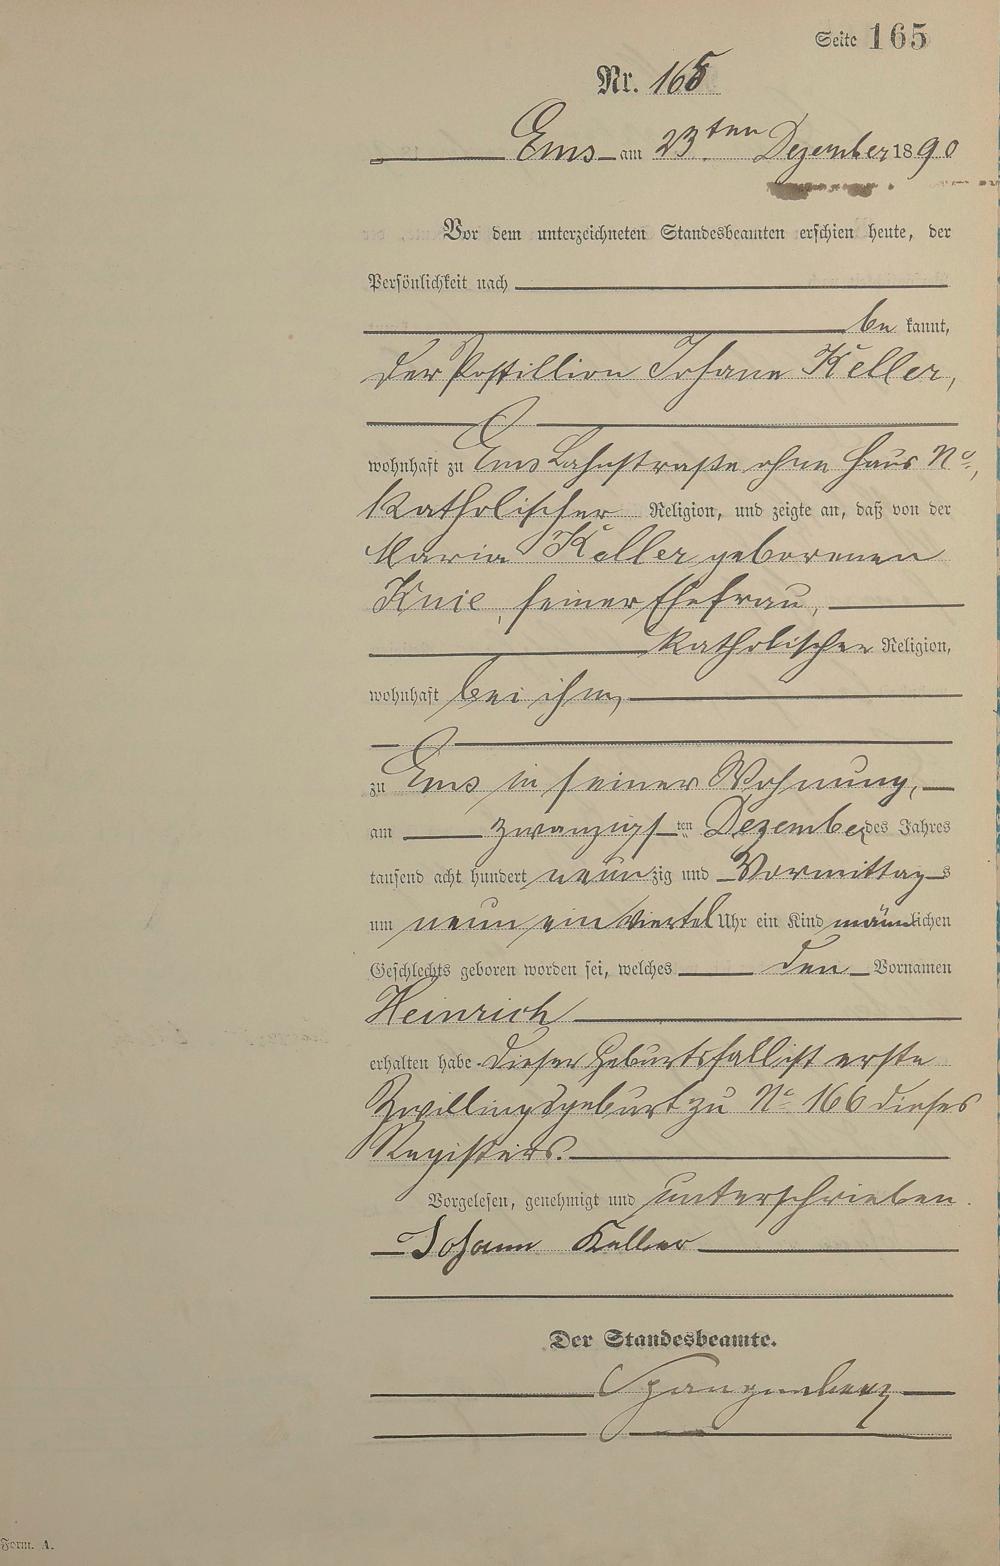 Seite 165
Nr. 165
Ems am 23ten Dezember 1890
Vor dem unterzeichneten Standesbeamten erschien heute, der
Persönlichkeit nach
bekannt,
der Postillion Johann Keller,
wohnhaft zu Ems Lahnstraße ohne Haus No.,
katholischer Religion, und zeigte an, daß von der
Maria Keller geborenen
Knie, seiner Ehefrau,
katholischer Religion,
wohnhaft bei ihm,
zu Ems in seiner Wohnung,
am zwanzigsten Dezember des Jahres
tausend acht hundert neunzig und Vormittags
um neun ein Viertel Uhr ein Kind männlichen
Geschlechts geboren worden sei, welches den Vornamen
Heinrich
erhalten habe. Dieser Geburtsfall ist erste
Zwillingsgeburt zu No 166 dieses
Registers.
Vorgelesen, genehmigt und unterschrieben.
Johann Keller
Der Standesbeamte.
Spangenberg
Form. A.